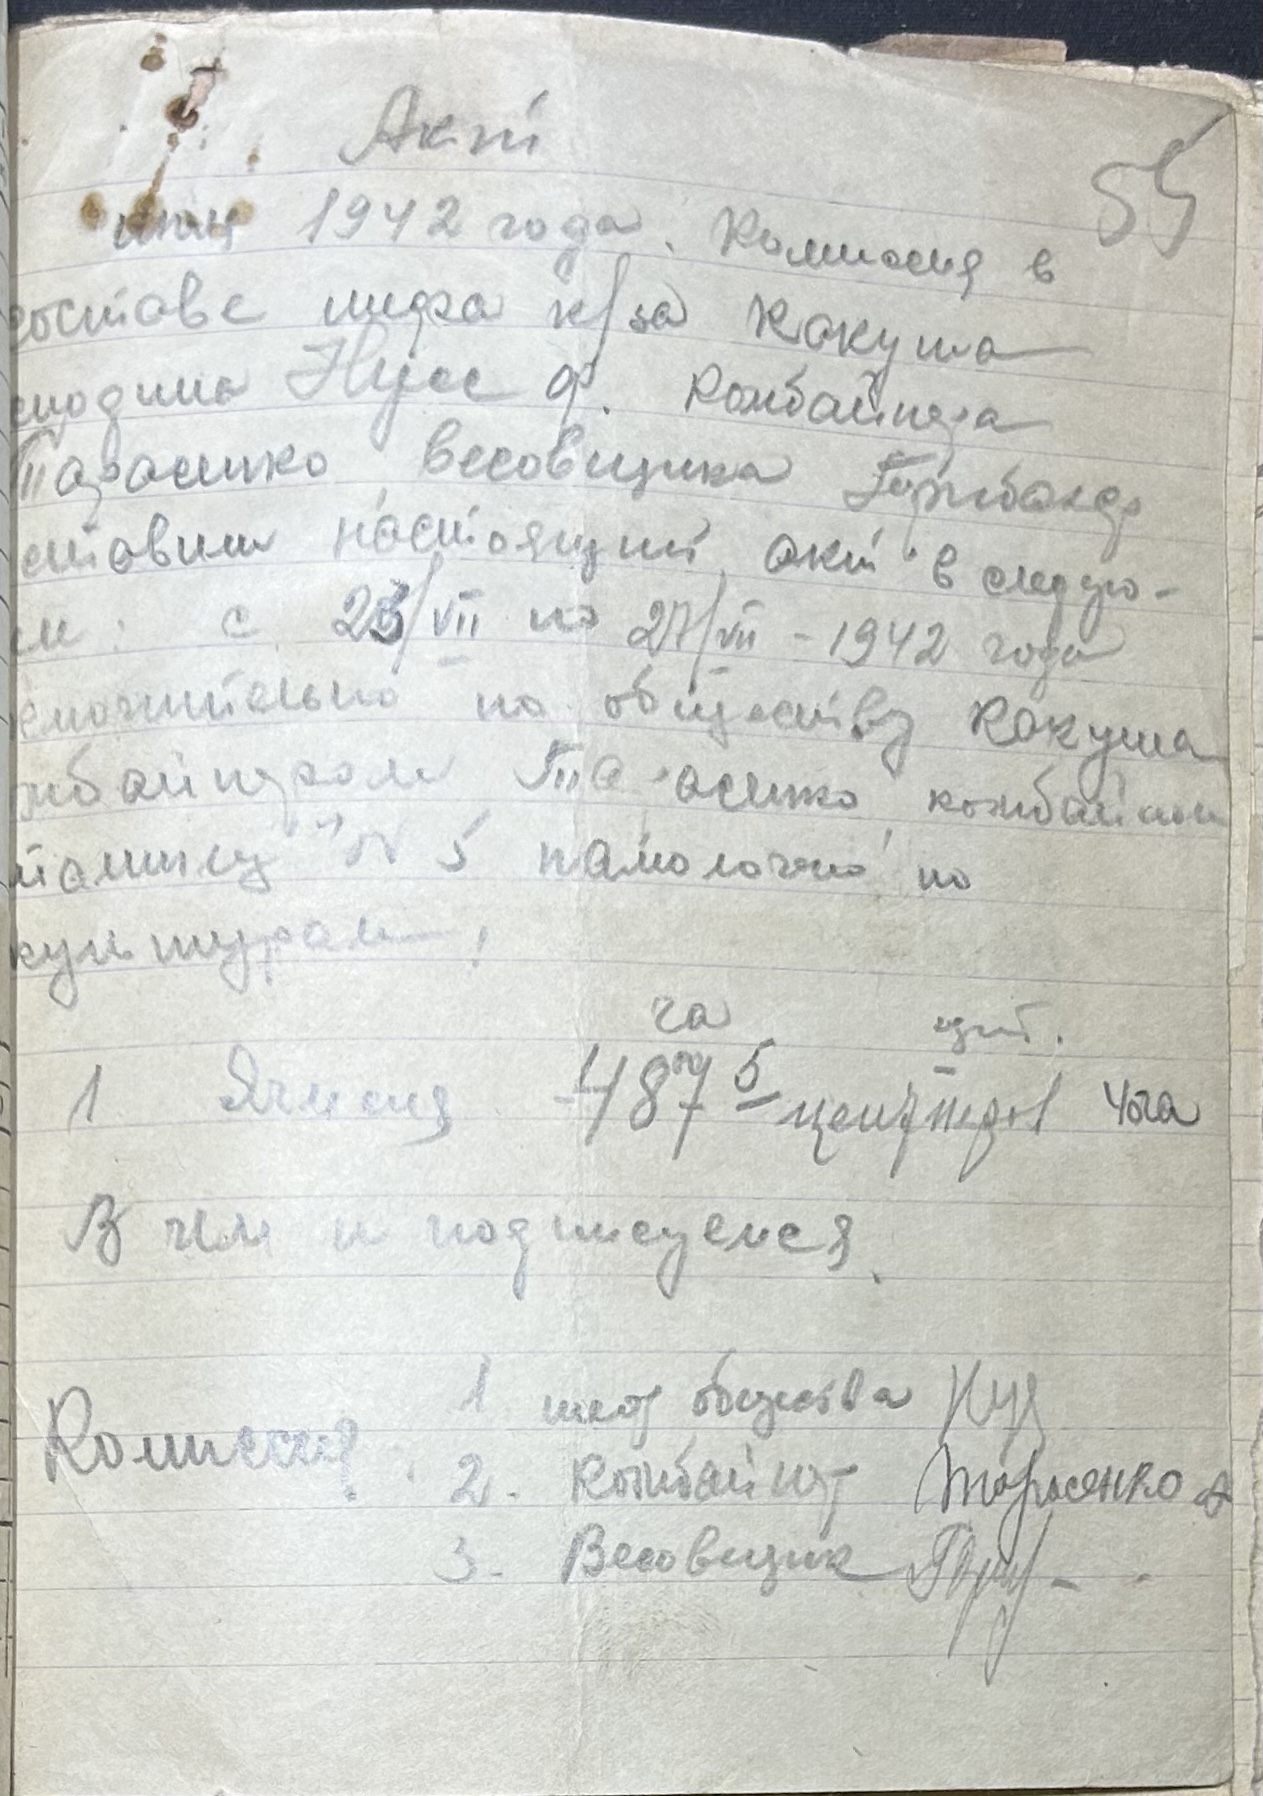 Акт
55
1942 года. Комиссия в
составе шефа к/за Кокуша
сподина Нусс Ф. Комбайнера
Тарасенко весовщика
ставим настоящий акт в следую-
м: с 23/VII по 27/VII - 1942 года
ключительно по обществу Кокуша
мбайнером Тарасенко комбайном
номолочено по
культурам,
га цнт.
1 Ячменя 487 5 центнеров
В чем и подписуемся.
Комиссия: 1 шеф общества Нус
2. Комбайнер Тарасенко
3. Весовщик